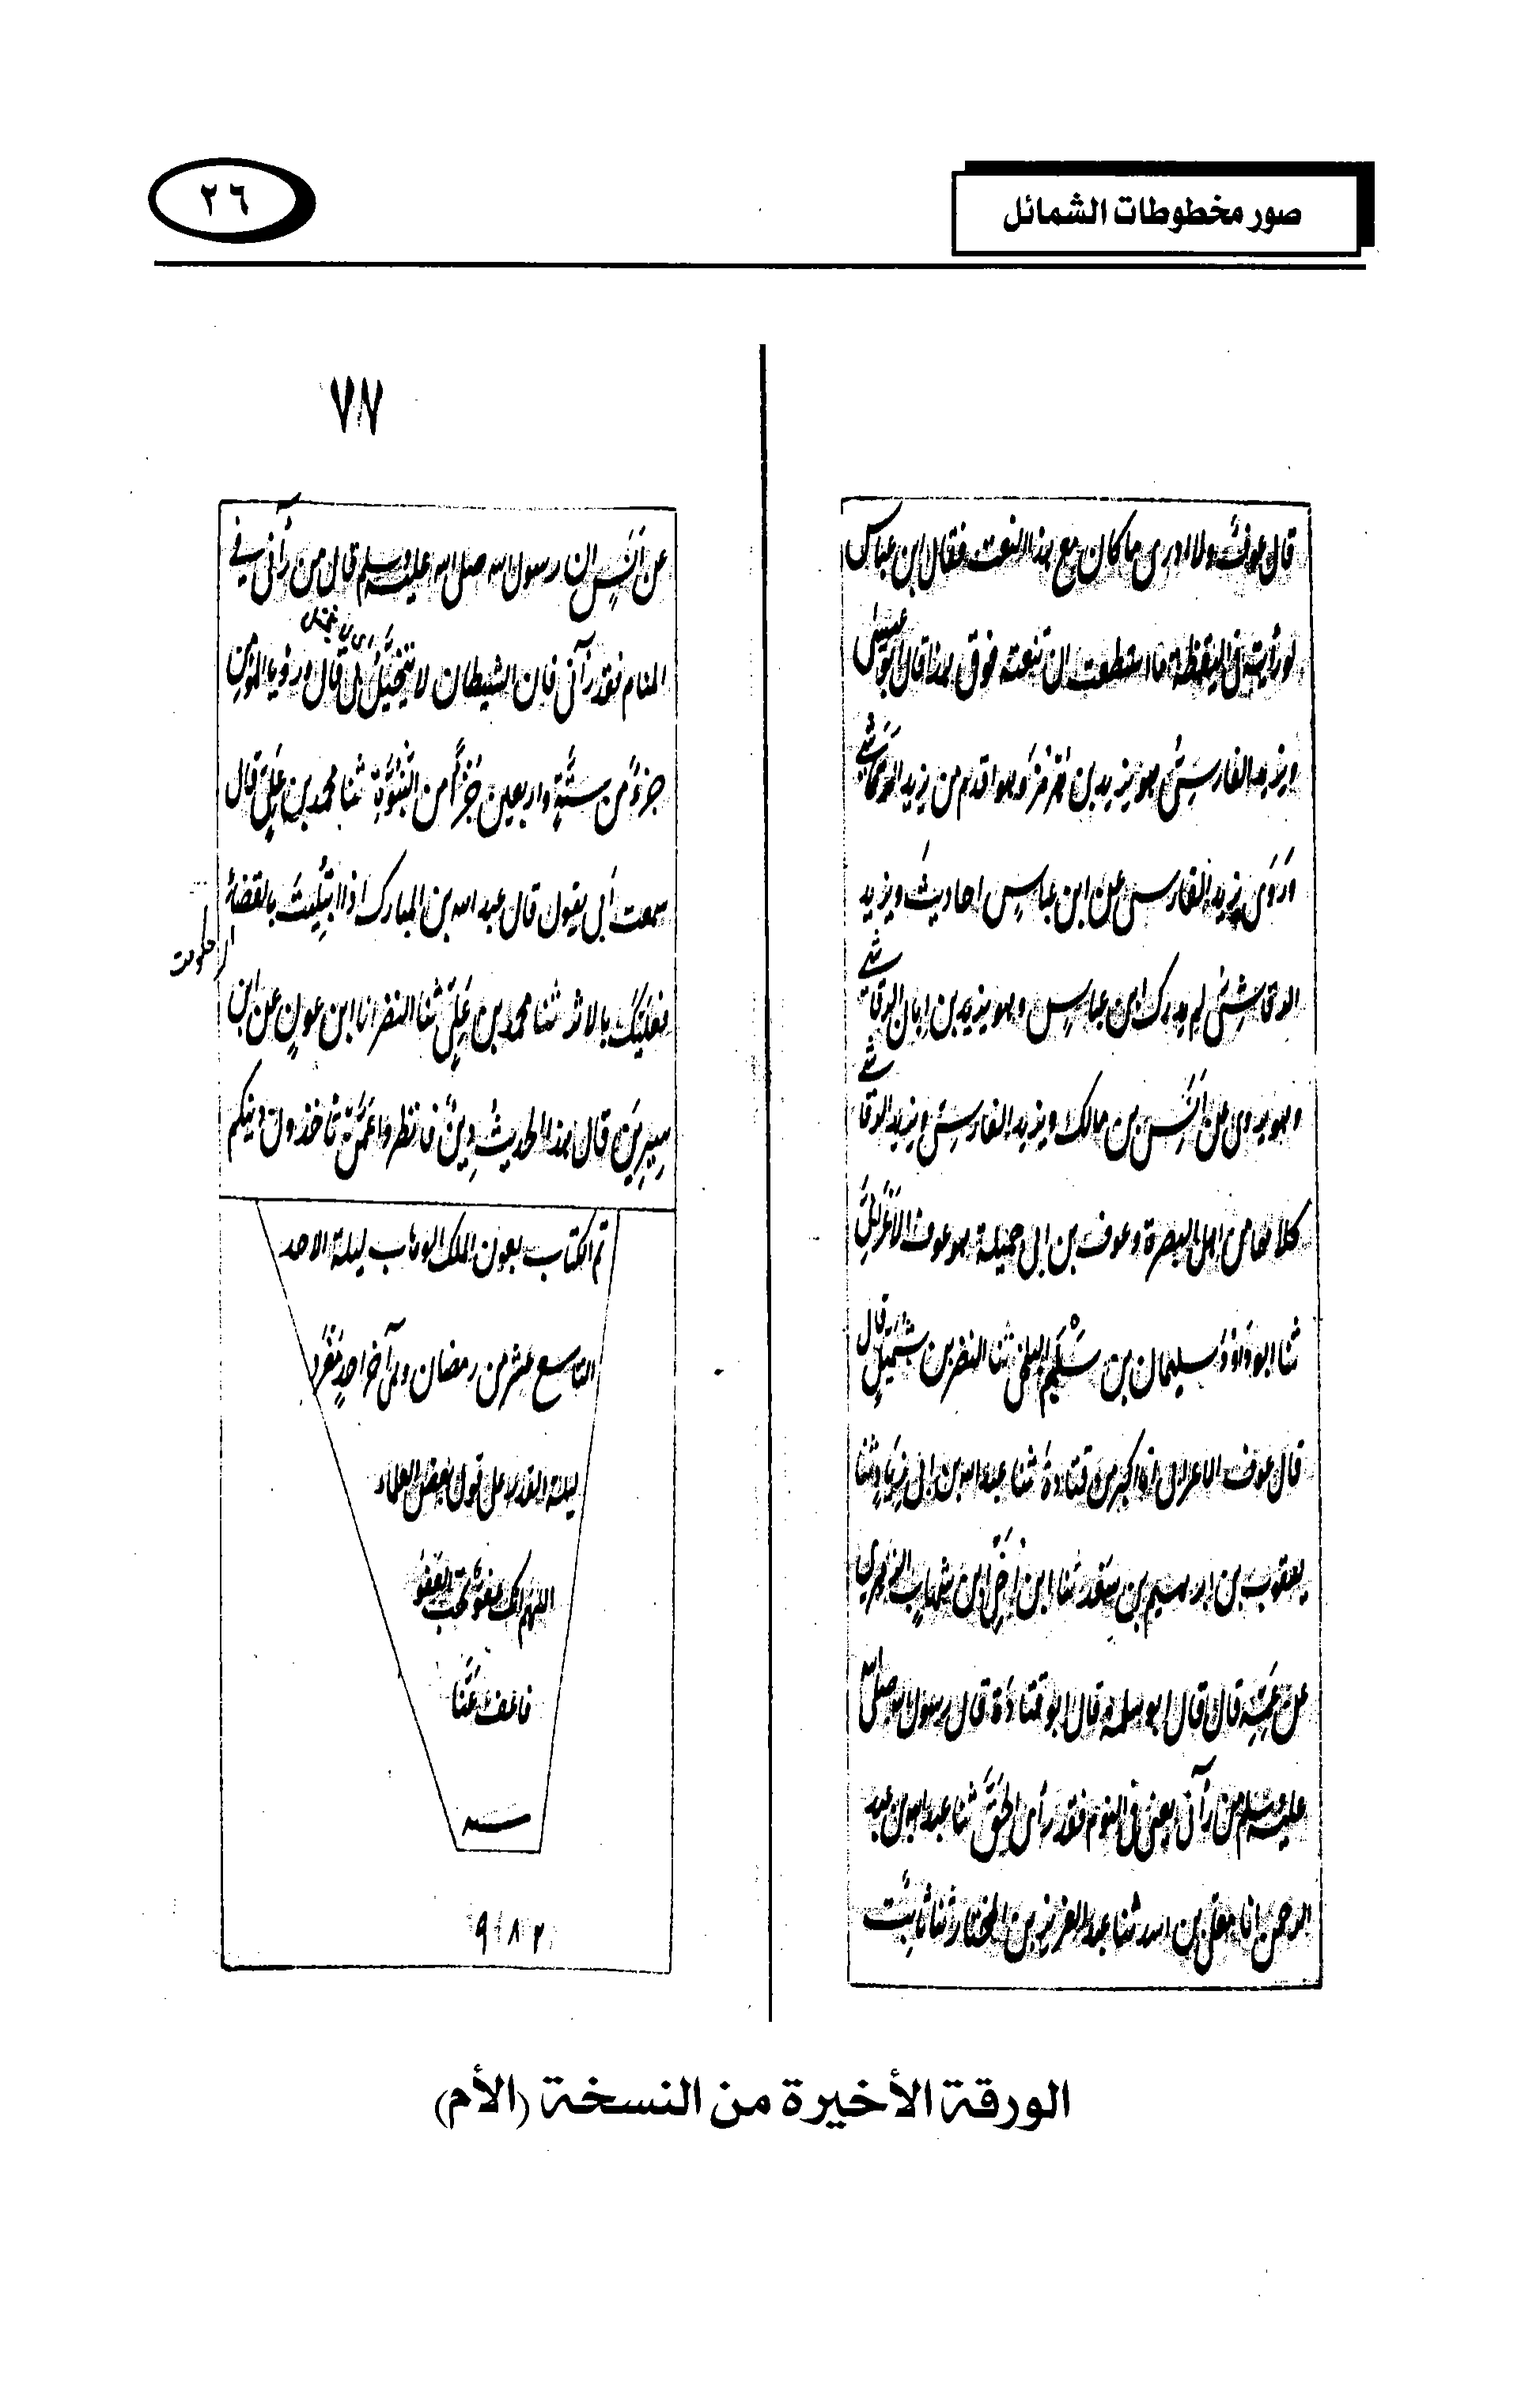 صور مخطوطات الشمائل
٢٦
قال عوف ولا ادرى ما كان مع هذا النعت فقال ابن عباس
لو رأيته فى اليقظة ما استطعت ان تنعته فوق هذا قال ابو عيسى
ويزيد الفارسىُّ هو يزيد بن هُرْمُزَ وهو اقدم من يزيد الرَّقَاشى
وَرَوَى يزيد الفارسى عن ابن عباسٍ احاديث ويزيد
الرقاشِىُّ لم يدرك ابن عباسٍ وهو يزيد بن ابان الرقاشى
وهو يروى عن اَنَسِ بن مالك ويزيد الفارسى ويزيد الرقاشى
كلاهما من اهل البصرة وعوف بن ابى جميلة هو عوف الاَعْرَابىُّ
ثنا ابو داؤدَ سليمان بن سَلْمٍ البلخى ثنا النضر بن شُمَيْلٍ قال
قال عوف الاعرابى انا اكبر من قتادةَ ثنا عبد الله بن ابى زِيَادٍ ثنا
يعقوب بن ابرهيم بن سَعْدٍ ثنا ابن اَخِى ابن شهابٍ الزهرى
عن عَمِّه قال قال ابو سلمة قال ابو قتادَة قال رسول الله صلى الله
عليه وسلم من رآنى يعنى فى النوم فقد رأى الحَقَّ ثنا عبد الله بن عبد
الرحمن انا معلى بن اسد ثنا عبد العزيز بن المختار ثنا ثابت
٧٧
عن اَنَسٍ ان رسول الله صلى الله عليه وسلم قال من رآنى فى
المنام فقد رآنى فان الشيطان لا يتخيَّلُ بى قال ورؤيا المؤمن
جزءٌ من سِتَّةٍ واربعين جُزْأً من النُّبُوَّةِ ثنا محمد بن عَلِىٍّ قال
سمعت اَبى يقول قال عبد الله بن المبارك اذا ابْتُلِيْتَ بالقضاء
فعلَيْكَ بالاثر ثنا محمد بن عَلِىٍّ ثنا النضر انا ابن عونٍ عن ابن
سِيرِيْنَ قال هذا الحديثُ دِينٌ فانظروا عَمَّنْ تاخذون دينكم
تم الكتاب بعون الملك الوهاب ليلة الاحد
التاسع عشر من رمضان
ليلة القدر على قول بعض العلماء
اللهم انك عفو تحب العفو
فاعف عَنَّا
٩٨٢
الورقة الأخيرة من النسخة (الأم)